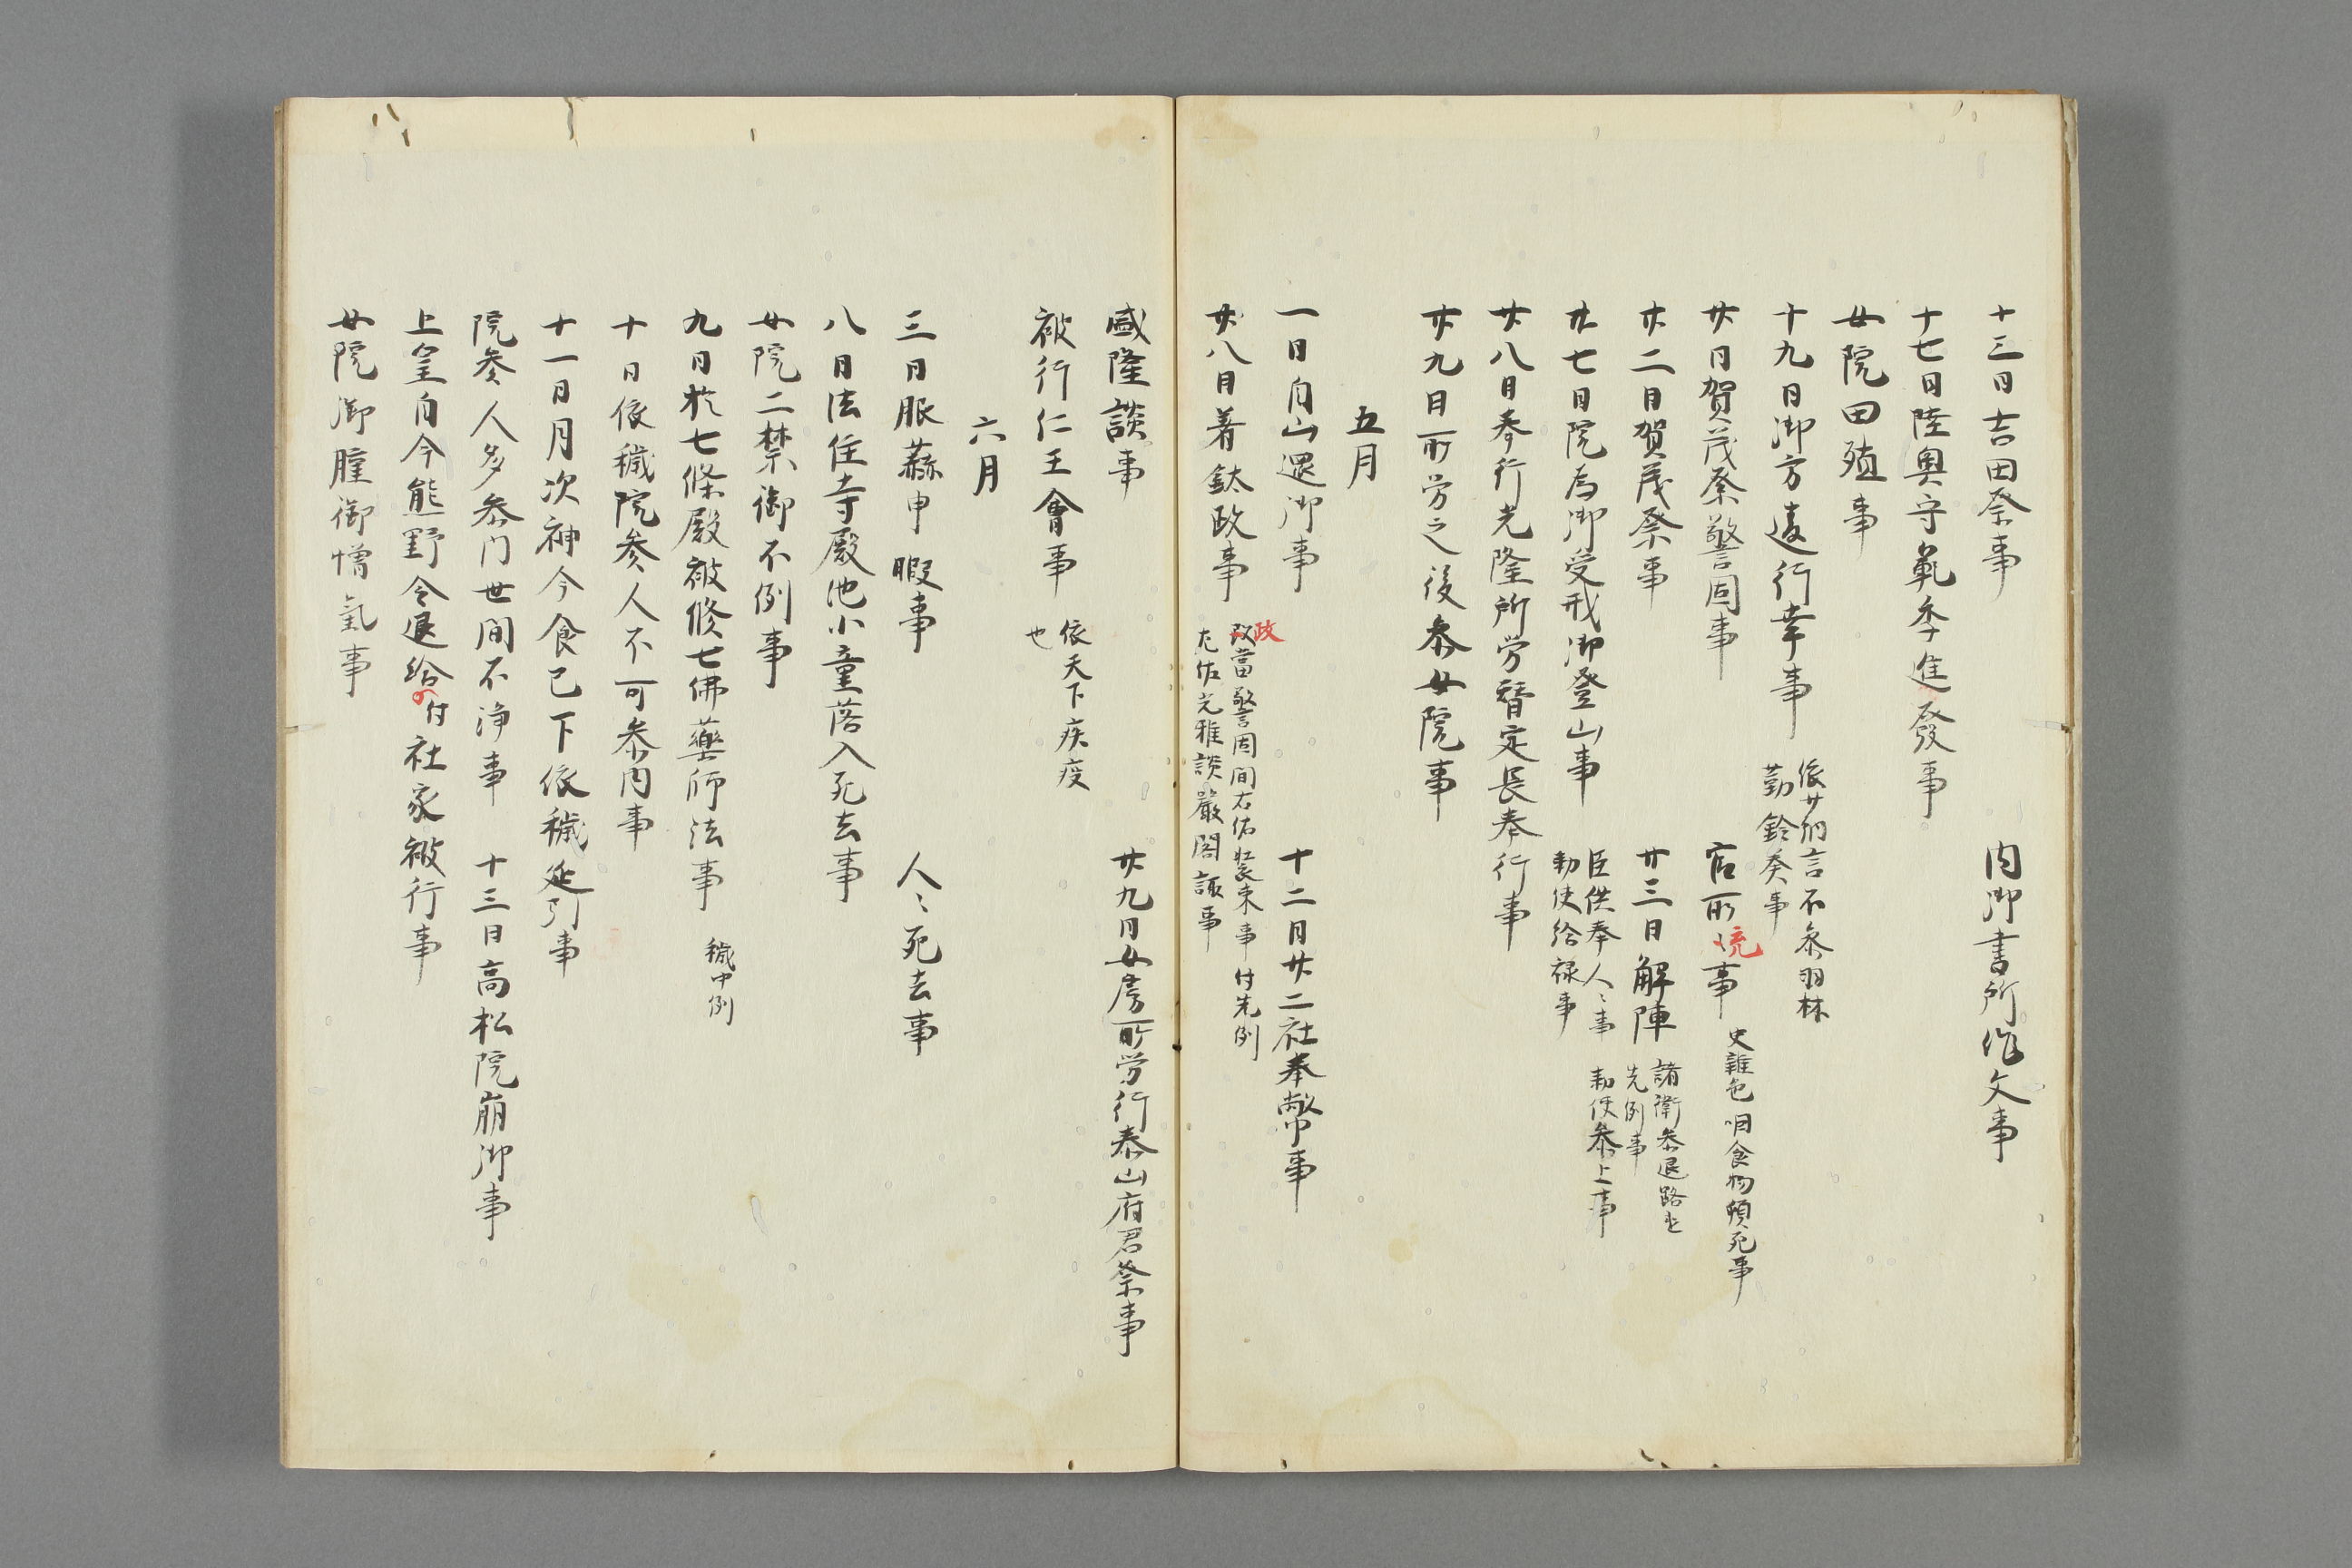 十三日吉田祭事　内御書所作文事
十七日陸奥守範季進發事
女院田殖事
十九日御方違行幸事　依少納言不参羽林
勤鈴奏事
廿日賀茂祭警固事　官所㤀事　史雑色咽食物頓死事
流
廿二日賀茂祭事　廿三日解陣　諸衛参退路
先例事
廿七日院為御受戒御登山事　臣供奉人々事　勅使参上事
勅使給禄事
廿八日奉行光隆所労替定長奉行事
廿九日所労之後参女院事
五月
一日自山還御事　十二日廿二社奉幣事
廿八日着釱政事　改當警固間右佑装束事付先例
政
尤佐光雅談嚴閤諏事
盛隆談事　廿九日女房所労行泰山府君祭事
被行仁王會事　依天下疾疫
也
六月
三日服蒜申暇事　人々死去事
八日法住寺殿池小童落入死去事
女院二禁御不例事
九日於七條殿被修七佛薬師法事　穢中例
十日依穢院参人不可参内事
十一日月次神今食已下依穢延引事
院参人多参门世間不浄事　十三日高松院崩御事
上皇自今熊野令退給付社家被行事
女院御腫御増氣事